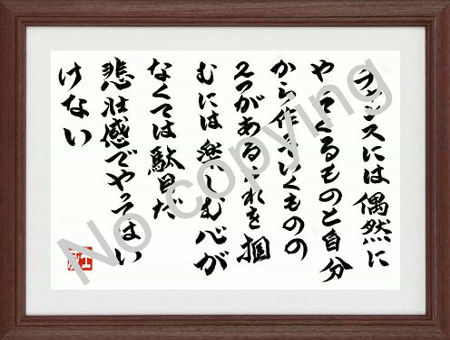 チャンスには偶然に
やってくるものと自分
から作っていくものの
2つがあるそれを掴
むには楽しむ心が
なくては駄目だ
悲壮感でやってはい
けない
No copying